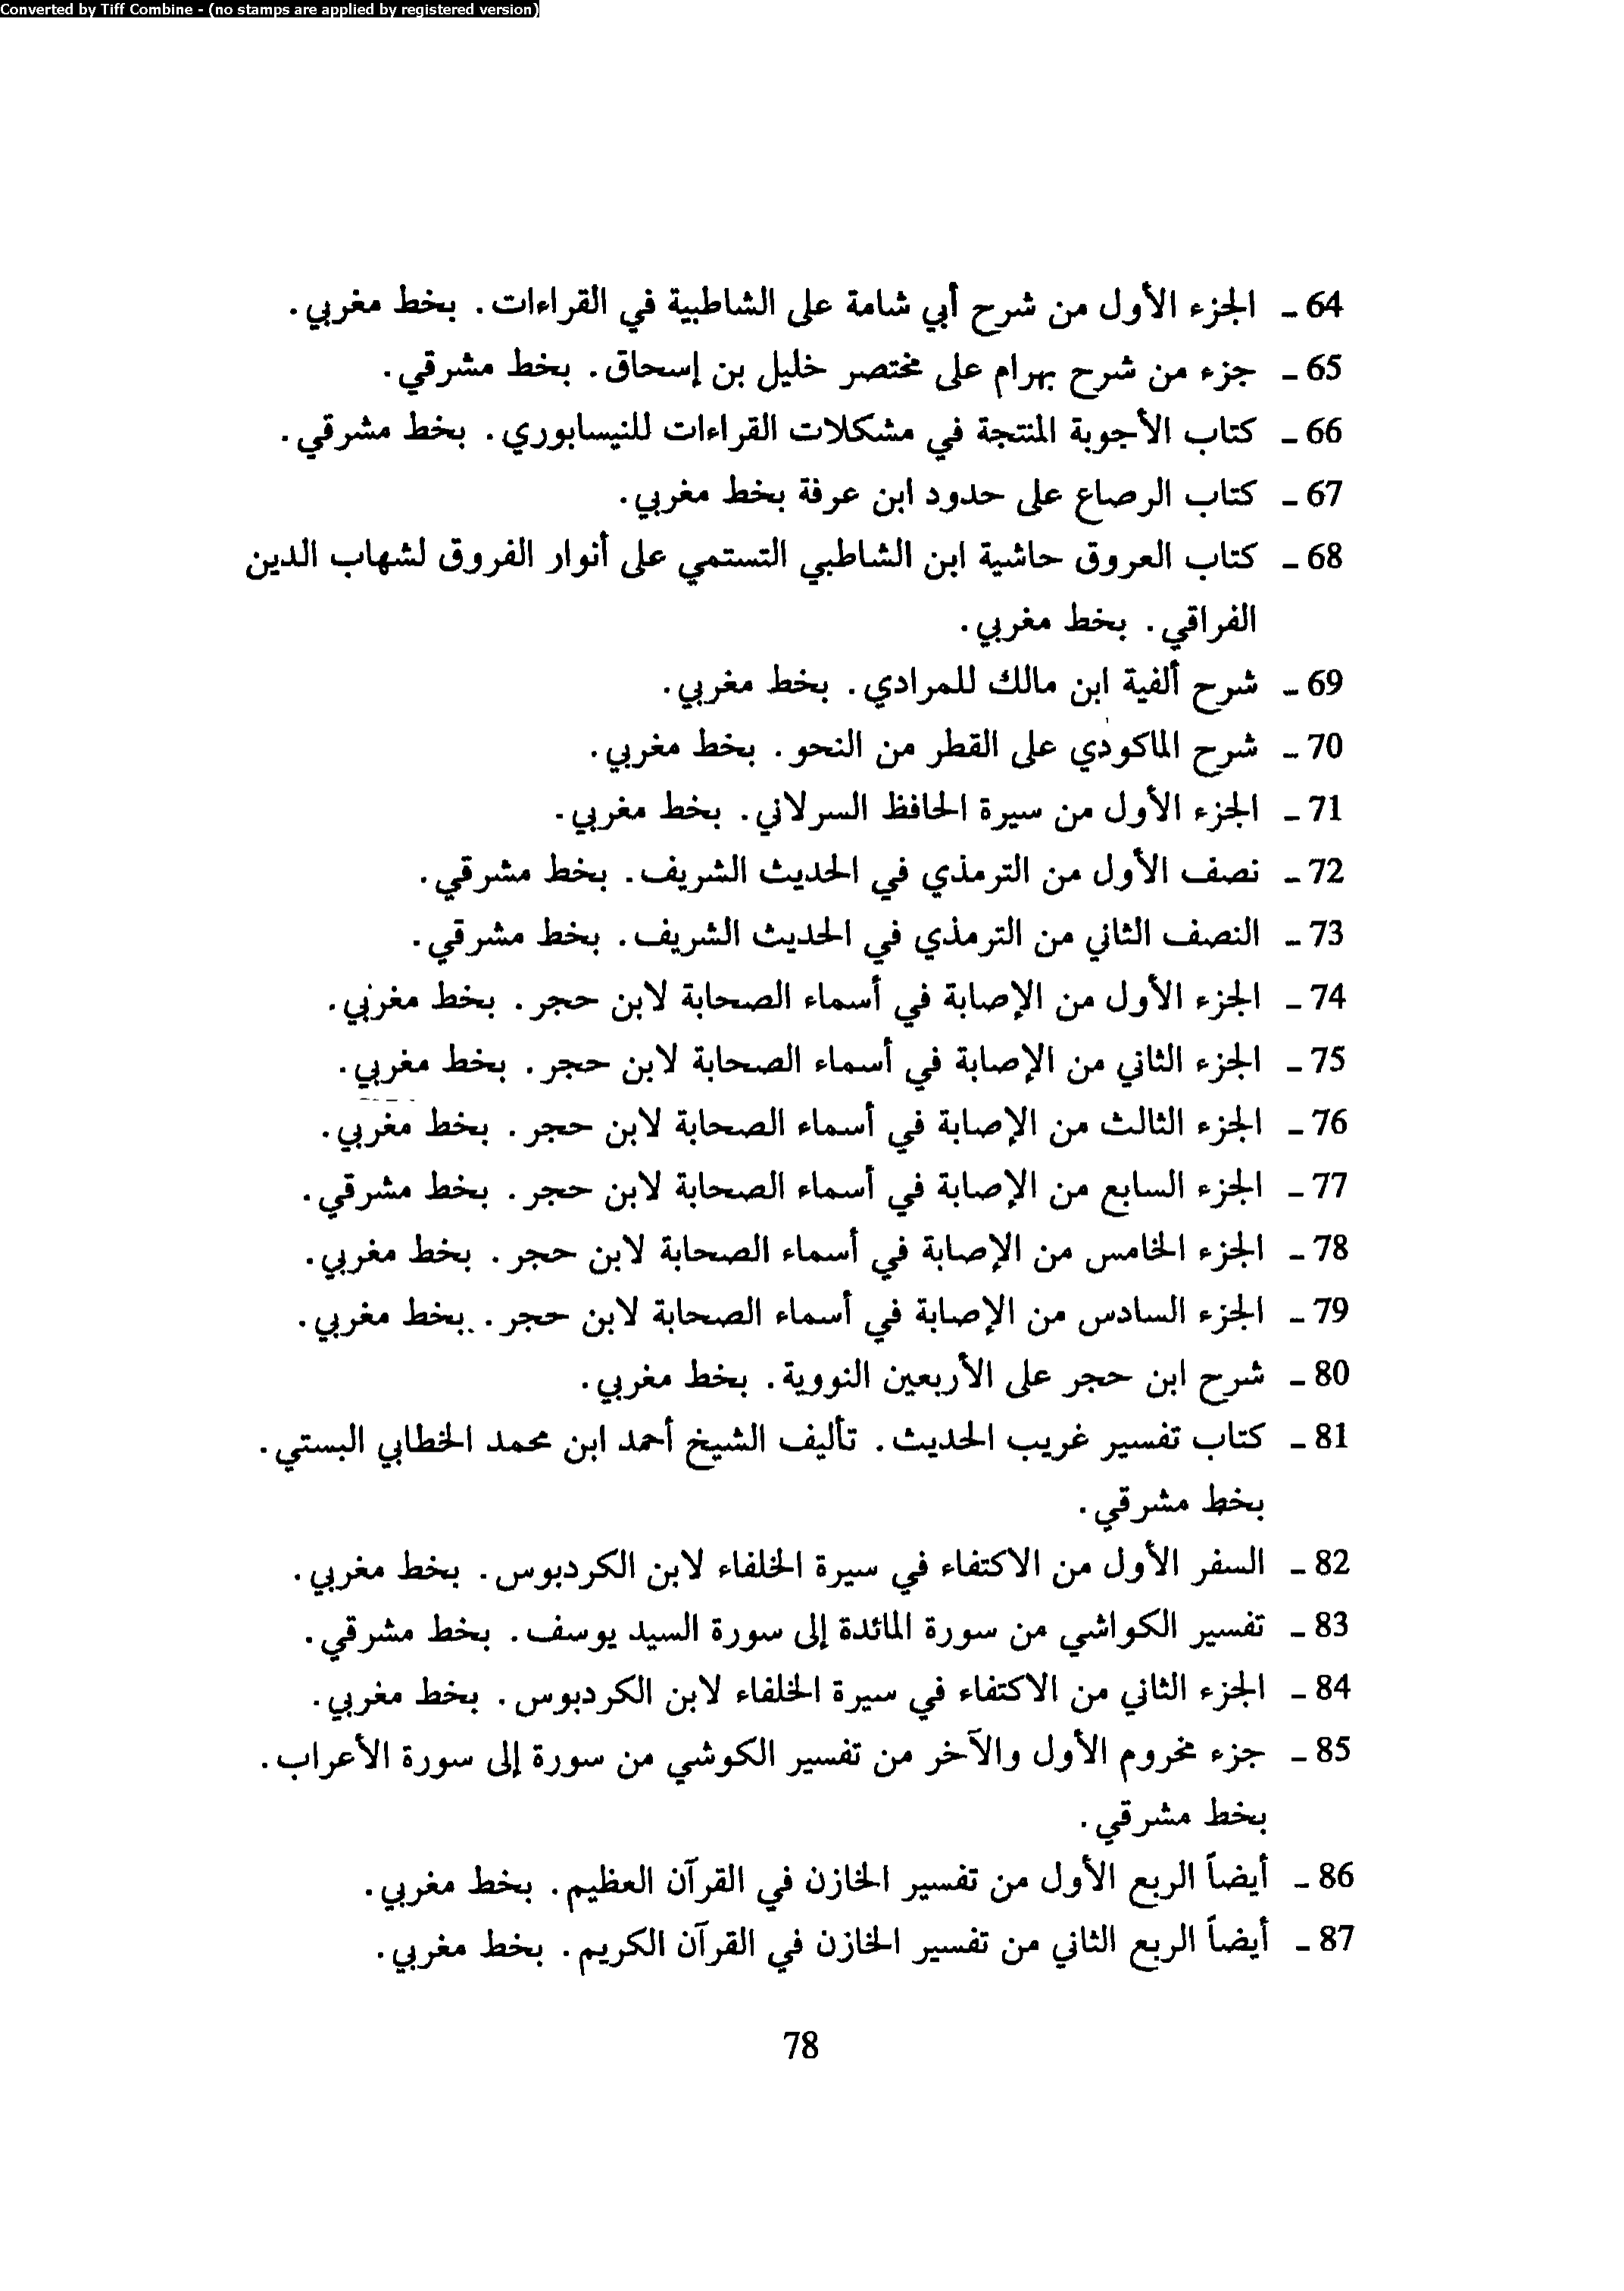 Converted by Tiff Combine - (no stamps are applied by registered version)
64 ـ الجزء الأول من شرح أبي شامة على الشاطبية في القراءات. بخط مغربي.
65 ـ جزء من شرح بهرام على مختصر خليل بن إسحاق. بخط مشرقي.
66 ـ كتاب الأجوبة المنتجة في مشكلات القراءات للنيسابوري. بخط مشرقي.
67 ـ كتاب الرصاع على حدود ابن عرفة بخط مغربي.
68 ـ كتاب العروق حاشية ابن الشاطبي التستمي على أنوار الفروق لشهاب الدين
الفراقي. بخط مغربي.
69 ـ شرح ألفية ابن مالك للمرادي. بخط مغربي.
70 ـ شرح الماكوذي على القطر من النحو. بخط مغربي.
71 ـ الجزء الأول من سيرة الحافظ السرلاني. بخط مغربي.
72 ـ نصف الأول من الترمذي في الحديث الشريف. بخط مشرقي.
73 ـ النصف الثاني من الترمذي في الحديث الشريف. بخط مشرقي.
74 ـ الجزء الأول من الإصابة في أسماء الصحابة لابن حجر. بخط مغربي.
75 ـ الجزء الثاني من الإصابة في أسماء الصحابة لابن حجر. بخط مغربي.
76 ـ الجزء الثالث من الإصابة في أسماء الصحابة لابن حجر. بخط مغربي.
77 ـ الجزء السابع من الإصابة في أسماء الصحابة لابن حجر. بخط مشرقي.
78 ـ الجزء الخامس من الإصابة في أسماء الصحابة لابن حجر. بخط مغربي.
79 ـ الجزء السادس من الإصابة في أسماء الصحابة لابن حجر. بخط مغربي.
80 ـ شرح ابن حجر على الأربعين النووية. بخط مغربي.
81 ـ كتاب تفسير غريب الحديث. تأليف الشيخ أحمد ابن محمد الخطابي البستي.
بخط مشرقي.
82 ـ السفر الأول من الاكتفاء في سيرة الخلفاء لابن الكردبوس. بخط مغربي.
83 ـ تفسير الكواشي من سورة المائدة إلى سورة السيد يوسف. بخط مشرقي.
84 ـ الجزء الثاني من الاكتفاء في سيرة الخلفاء لابن الكردبوس. بخط مغربي.
85 ـ جزء مخروم الأول والآخر من تفسير الكوشي من سورة إلى سورة الأعراب.
بخط مشرقي.
86 ـ أيضاً الربع الأول من تفسير الخازن في القرآن العظيم. بخط مغربي.
87 ـ أيضاً الربع الثاني من تفسير الخازن في القرآن الكريم. بخط مغربي.
78